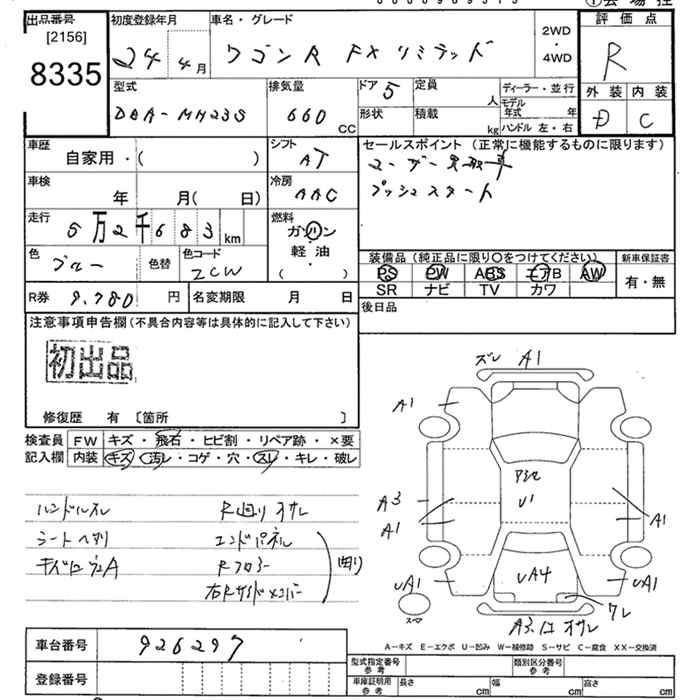 出品番号 [2156] 8335
初度登録年月 24年 4月
車名・グレード ワゴンR FXリミテッド
2WD・4WD
評価点 R
外装 D 内装 C
型式 DBA-MH23S
排気量 660 CC
ドア 5 形状
定員 人 積載 kg
ディーラー・並行
モデル年式 年
ハンドル 左・右
車歴 自家用・( )
シフト AT
セールスポイント (正常に機能するものに限ります)
ユーザー買取車
プッシュスタート
車検 年 月( 日)
冷房 AAC
走行 5万2千683 km
燃料 ガソリン 軽油 ・( )
色 ブルー 色替
色コード ZCW
装備品 (純正品に限り○をつけてください) 新車保証書
PS PW ABS エアB AW 有・無
SR ナビ TV カワ
R券 9,780 円 名変期限 月 日
後日品
注意事項申告欄 (不具合内容等は具体的に記入して下さい)
初出品
修復歴 有 〔箇所 〕
検査員記入欄
FW キズ・飛石・ヒビ割・リペア跡・×要
内装 キズ・汚レ・コゲ・穴・スレ・キレ・破レ
ハンドルスレ R廻りオサレ
シートヘタリ エンドパネル
Rフロアー
右Rサイドメンバー
曲り
ズレ A1
A1
A3
A1
U1
A1
UA1
UA4
UA1
スマ
ワレ
A3 オサレ
A-キズ E-エクボ U-凹み W-補修跡 S-サビ C-腐食 XX-交換済
車台番号 926297
登録番号
型式指定番号 参考 類別区分番号 参考
車庫証明用 参考 長さ cm 幅 cm 高さ cm